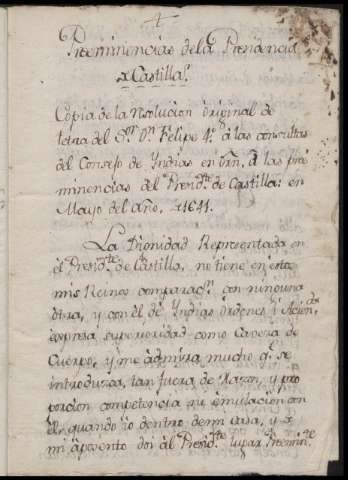 Preeminencias de la Presidencia
de Castilla.
Copia de la resolucion original de
letra del Sr. Dn. Felipe 4.º à las consultas
del Consejo de Yndias en rrn, à las pre
minencias del Presid.te de Castilla: en
Mayo del año, 1641.
La Dignidad Representada en
el Presid.te de Castilla, no tiene en estos
mis Reinos comparac.n con ninguna
otra, y con él de Yndias ordenes y Haciend.
expresa superioridad como Cavesa de
Cuerpo, y me admira mucho q.e se
introdusca, tan fuera de Razon, y pro
porcion competencia ni emulacion con
el, quando io dentro de mi casa, y à
mi aposento doi al Presid.te lugar Preemin.te